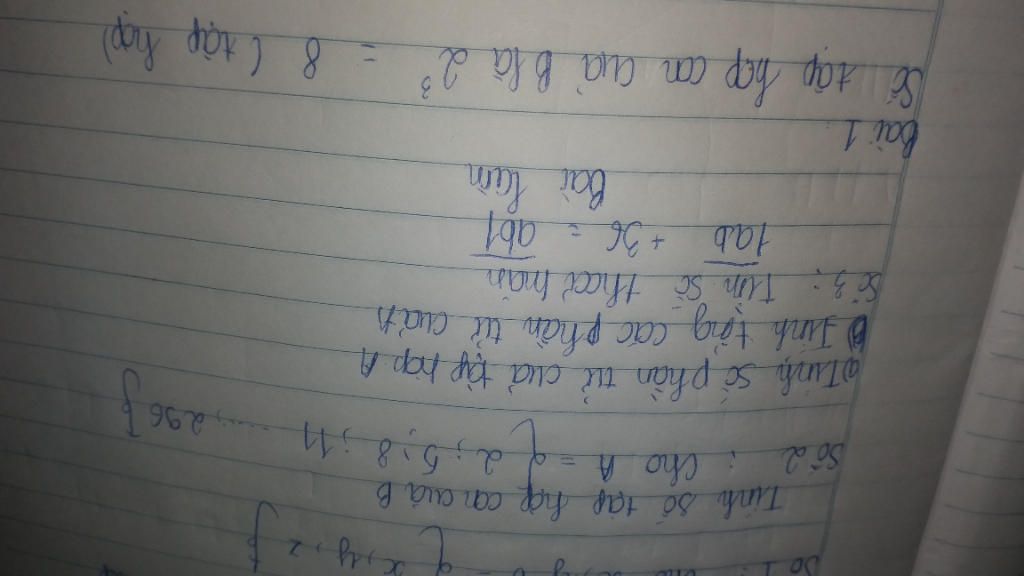 Số 1: Cho B = { x, y, z }
Tính số tập hợp con của B
Số 2 : Cho A = { 2 ; 5 ; 8 ; 11 ....., 296 }
a) Tính số phần tử của tập hợp A
b) Tính tổng các phần tử của A
Số 3 : Tìm số thoả mãn
1ab + 36 = ab1
Bài làm
Bài 1
Số tập hợp con của B là 2³ = 8 ( tập hợp)